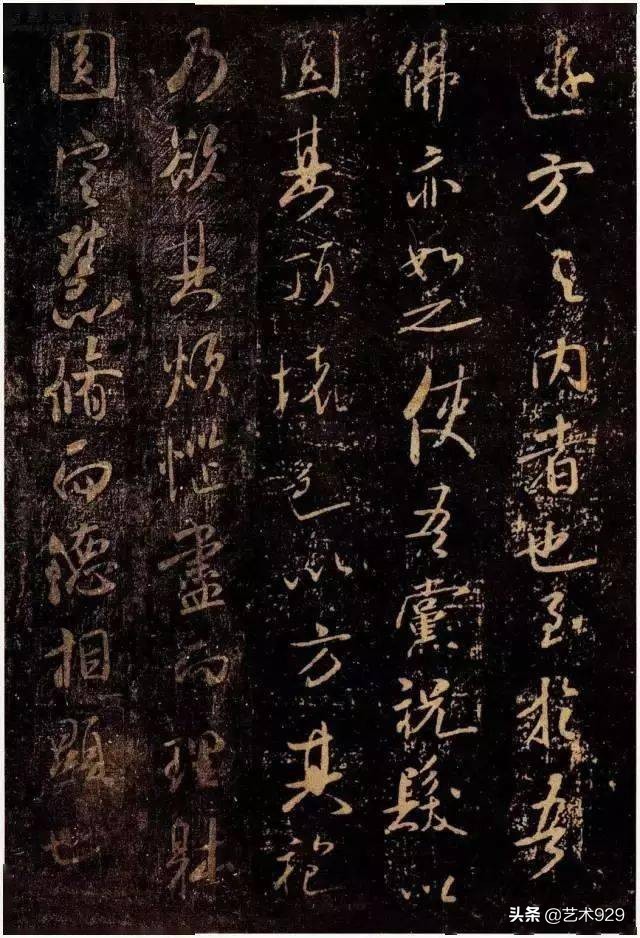 遊方之内者也至於吾
佛亦如之使吾黨祝髮以
圓其頂壞色以方其袍
乃欲其煩惱盡而理躰
圓定慧脩而德相顯也
头条 @艺术929